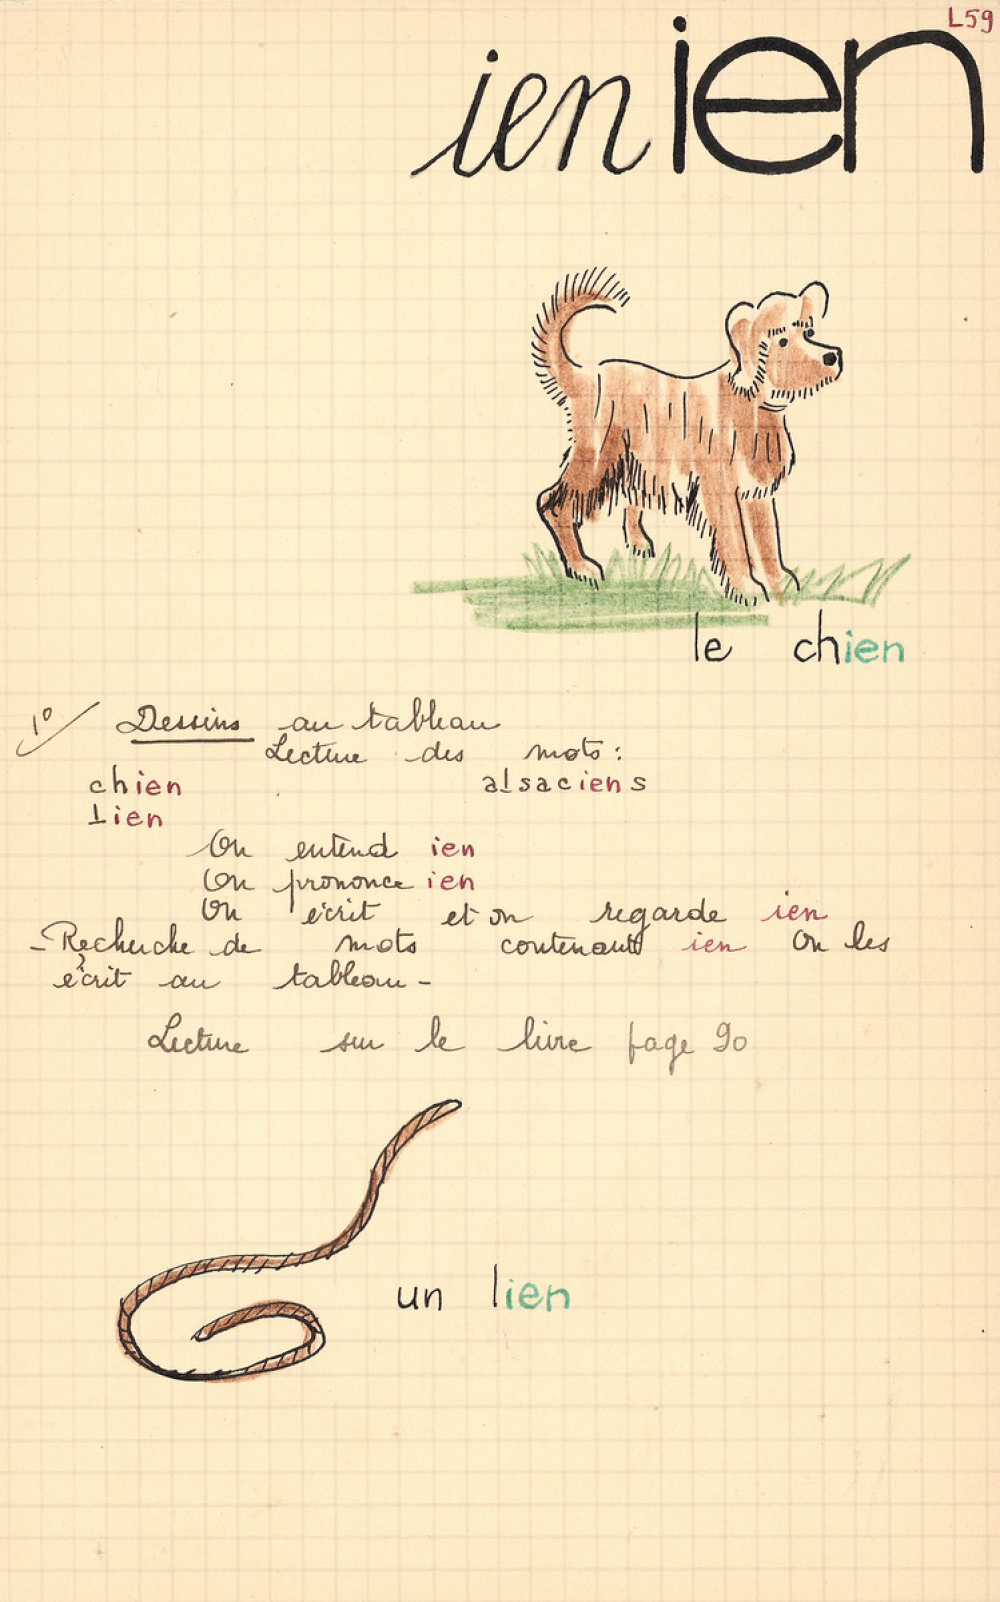 L59
ien ien
le chien
1º Dessins au tableau
Lecture des mots:
chien alsaciens
Lien
On entend ien
On prononce ien
On écrit et on regarde ien
- Recherche de mots contenant ien On les
écrit au tableau -
Lecture sur le livre page 90
un lien